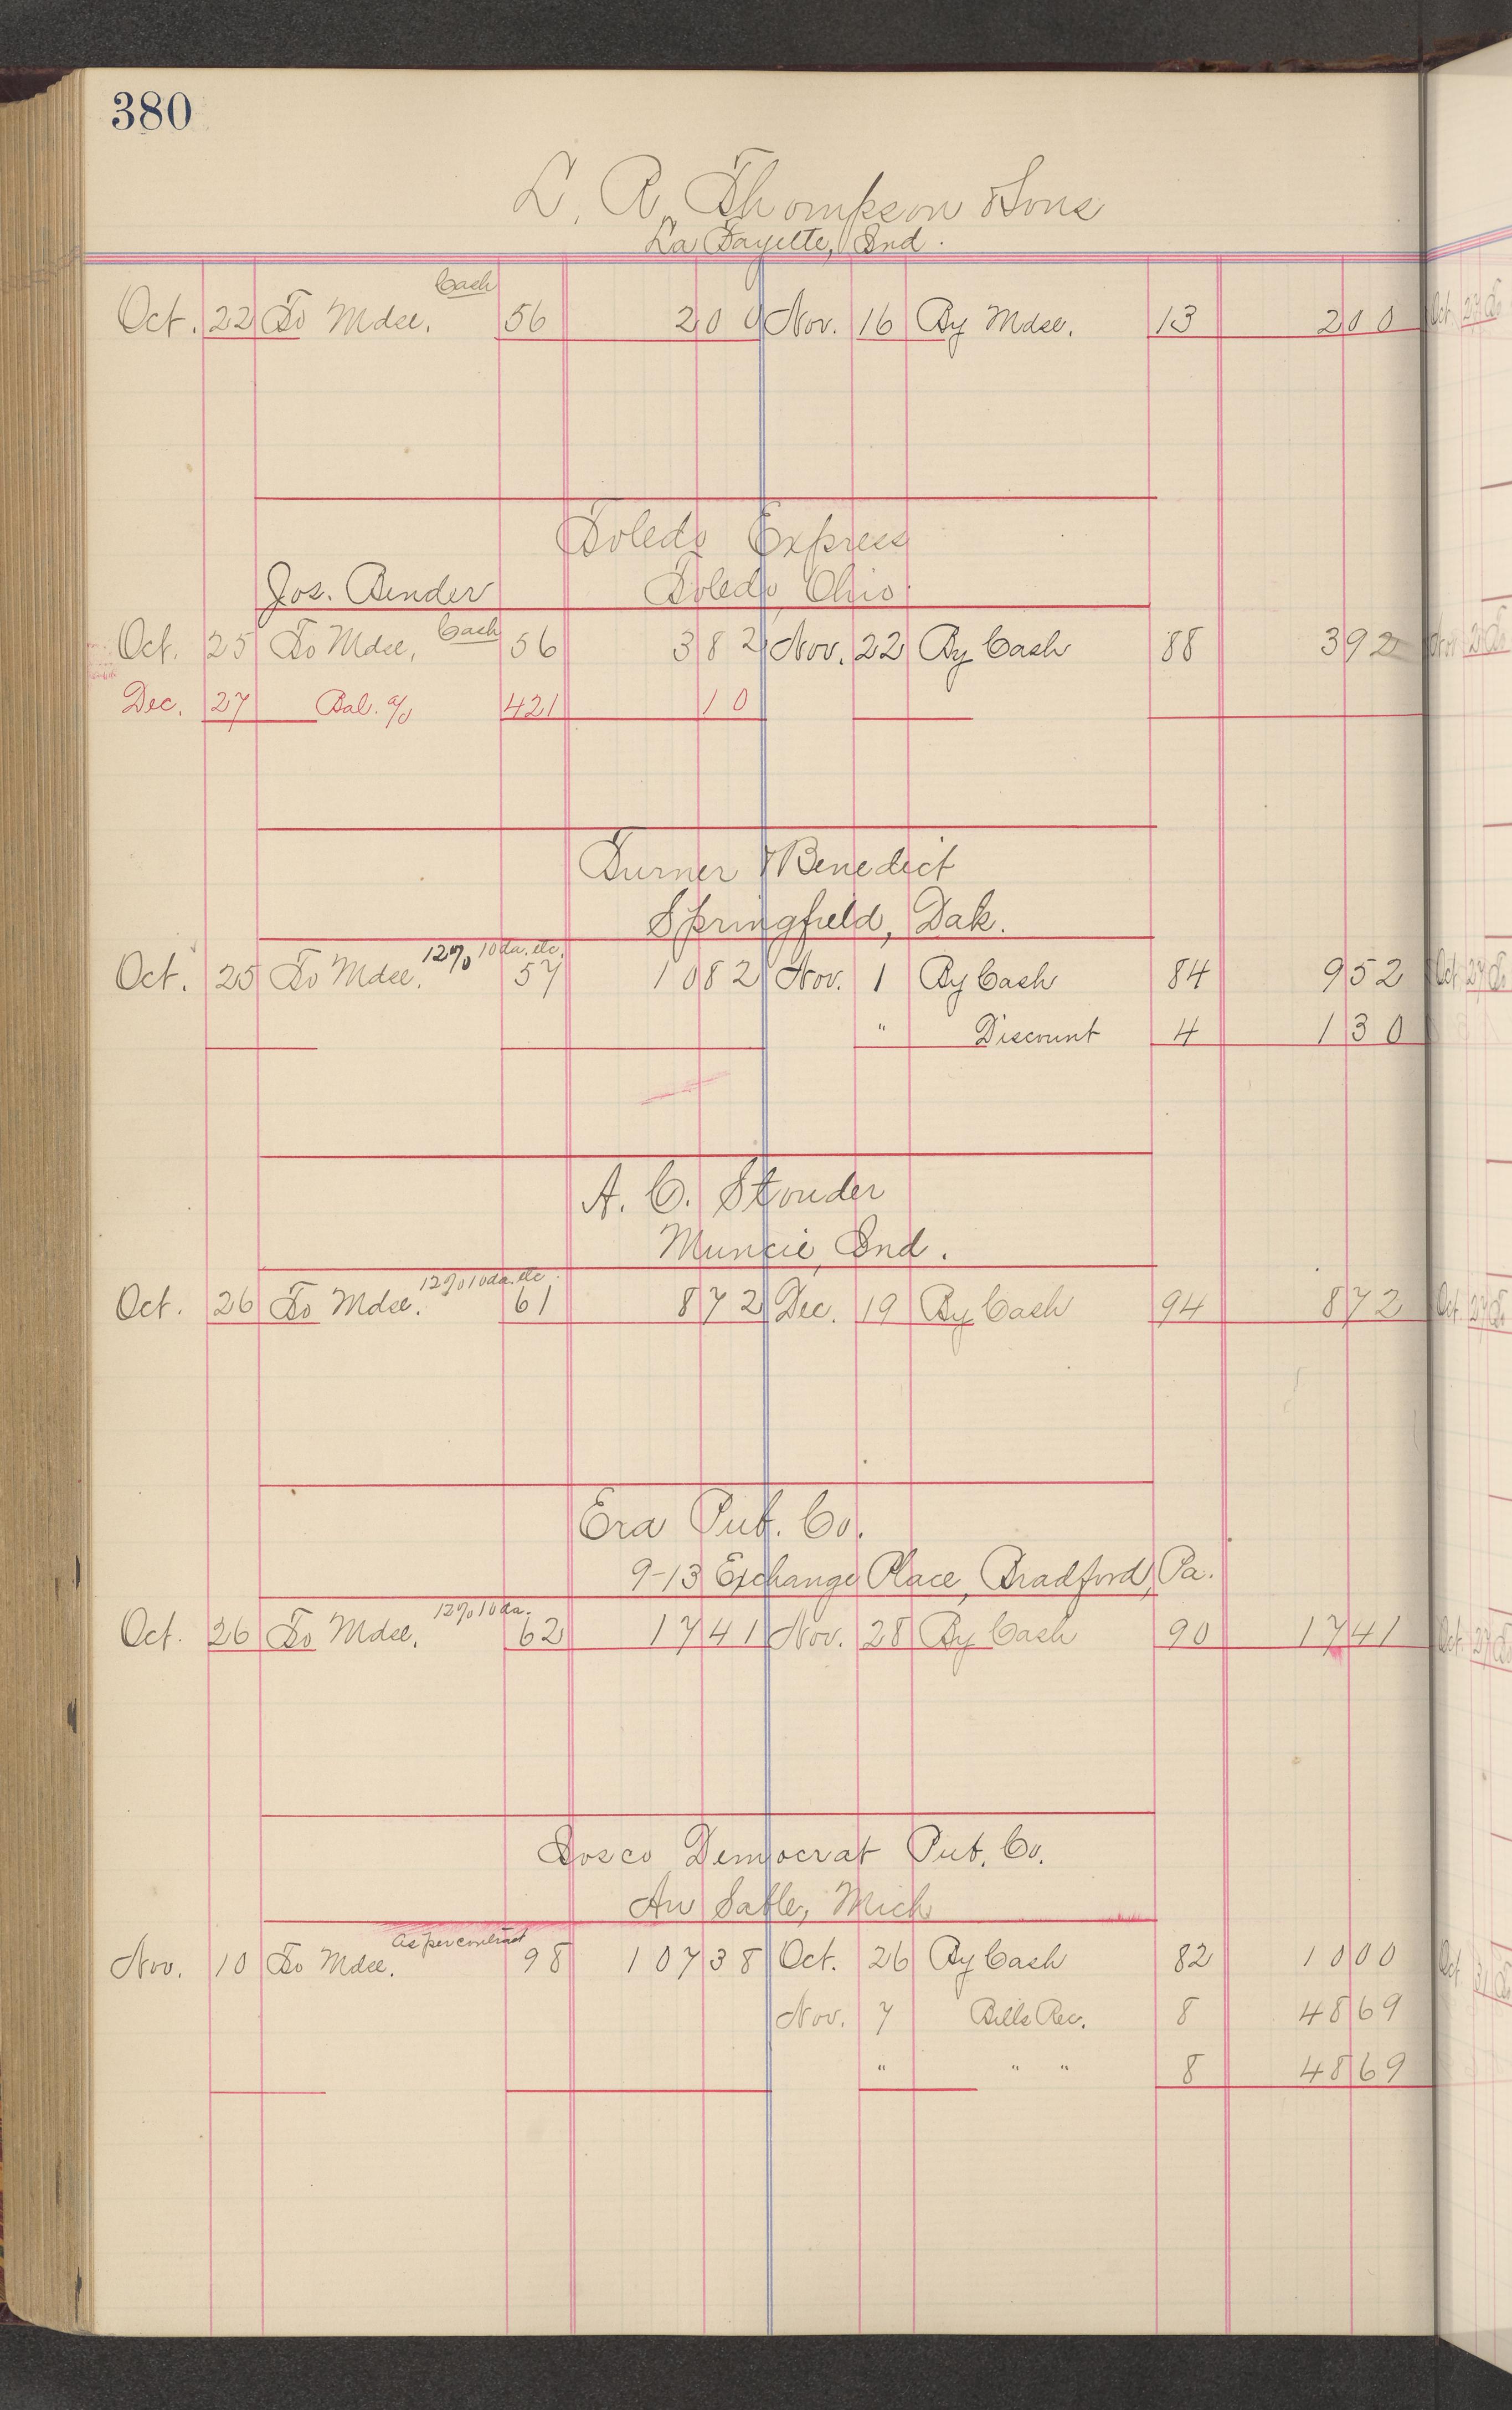 380
L. R. Thompson & Sons
La Fayette, Ind.
Cash
Oct. 22 To Mdse. 56 2 00 Nov. 16 By Mdse. 13 2 00
Toledo Express
Jos. Bender Toledo, Ohio
Cash
Oct. 25 To Mdse. 56 3 82 Nov. 22 By Cash 88 3 92
Dec. 27 Bal. a/c 421 10
Turner & Benedict
Springfield, Dak.
12% 10 da. etc.
Oct. 25 To Mdse. 57 10 82 Nov. 1 By Cash 84 9 52
" Discount 4 1 30
A. C. Stouder
Muncie, Ind.
12% 10 da. etc.
Oct. 26 To Mdse. 61 8 72 Dec. 19 By Cash 94 8 72
Era Pub. Co.
9-13 Exchange Place, Bradford, Pa.
12% 10 da.
Oct. 26 To Mdse. 62 17 41 Nov. 28 By Cash 90 17 41
Iosco Democrat Pub. Co.
Au Sable, Mich
As per contract
Nov. 10 To Mdse. 98 107 38 Oct. 26 By Cash 82 10 00
Nov. 7 Bills Rec. 8 48 69
" " " 8 48 69